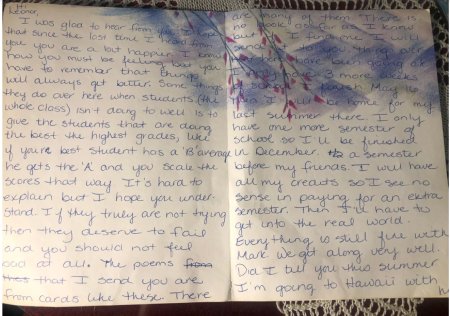 Leonor,
I was glad to hear from you. I hope
that since the last time I heard from
you you are a bit happier. I know
how you must be feeling but you
have to remember that things
will always get better. Some things
they do over here when students (the
whole class) isn't doing to well is to
give the students that are doing
the best the highest grades, like
if your best student has a 'B' average
he gets the 'A' and you scale the
scores that way. It's hard to
explain but I hope you under-
stand. If they truly are not trying
then they deserve to fail
and you should not feel
bad at all. The poems from
that I send you are
from cards like these. There
are many of them. There is
no book as far as I know
but if I find one I will
send it to you
have been
only have 3 more weeks
of school May 16
I will be home for my
last summer there. I only
have one more semester of
school so I'll be finished
in December. a semester
before my friends. I will have
all my creads so I see no
sense in paying for an extra
semester. Then I'll have to
get into the real world.
Everything is still fine with
Mark we get along very well.
Did I tell you this summer
I'm going to Hawaii with